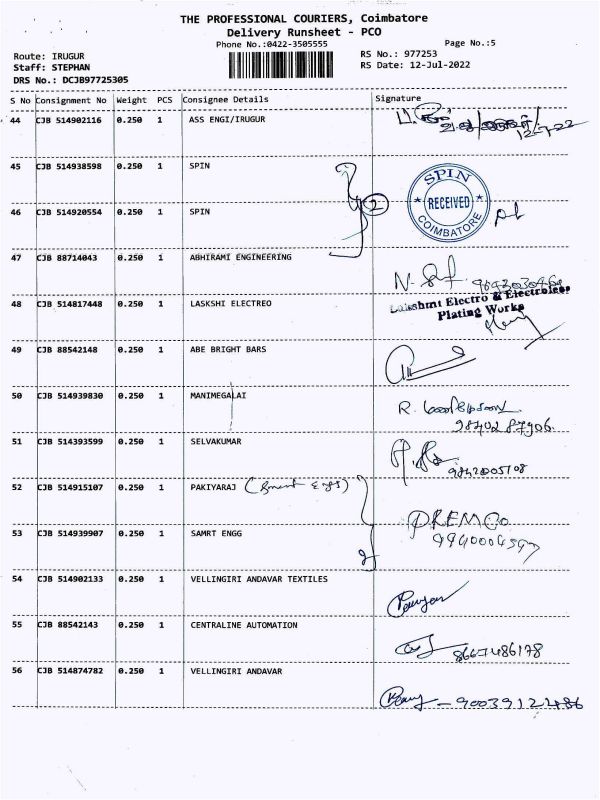 THE PROFESSIONAL COURIERS, Coimbatore
Delivery Runsheet - PCO
Phone No.:0422-3505555
Page No.:5
Route: IRUGUR
RS No.: 977253
Staff: STEPHAN
RS Date: 12-Jul-2022
DRS No.: DCJB97725305
S No Consignment No Weight PCS Consignee Details Signature
44 CJB 514902116 0.250 1 ASS ENGI/IRUGUR
12-7-22
45 CJB 514938598 0.250 1 SPIN
SPIN
RECEIVED
COIMBATORE
2
46 CJB 514920554 0.250 1 SPIN
47 CJB 88714043 0.250 1 ABHIRAMI ENGINEERING
48 CJB 514817448 0.250 1 LASKSHI ELECTREO
Lakshmi Electro & Electroless
Plating Works
49 CJB 88542148 0.250 1 ABE BRIGHT BARS
50 CJB 514939830 0.250 1 MANIMEGALAI
R.
98402 87906.
51 CJB 514393599 0.250 1 SELVAKUMAR
9842005108
52 CJB 514915107 0.250 1 PAKIYARAJ
PREMCO
53 CJB 514939907 0.250 1 SAMRT ENGG
54 CJB 514902133 0.250 1 VELLINGIRI ANDAVAR TEXTILES
55 CJB 88542143 0.250 1 CENTRALINE AUTOMATION
8667486178
56 CJB 514874782 0.250 1 VELLINGIRI ANDAVAR
- 9003912486